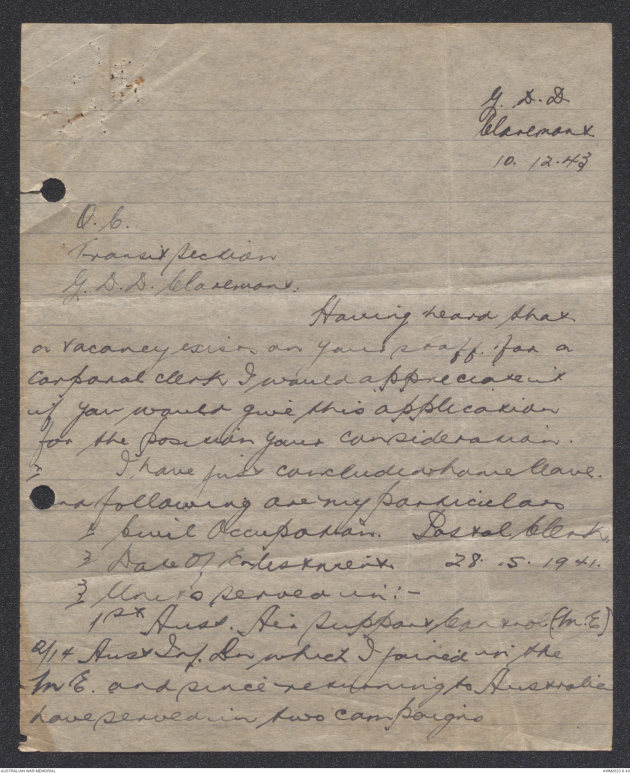 G. D. D
Claremont
10. 12. 43
O. C.
Transit section
G. D. D. Claremont.
Having heard that
a vacancy exists on your staff for a
corporal clerk I would appreciate it
if you would give this application
for the position your consideration.
I have just concluded home leave.
and following are my particulars
1 Civil Occupation. Postal Clerk.
2 Date Of Enlistment 28. 5. 1941.
3 Units served in:-
1st Aust. Air support Control (M.E)
2/14 Aust Inf. Bn which I joined in the
M E. and since returning to Australia
have served in two campaigns
AUSTRALIAN WAR MEMORIAL